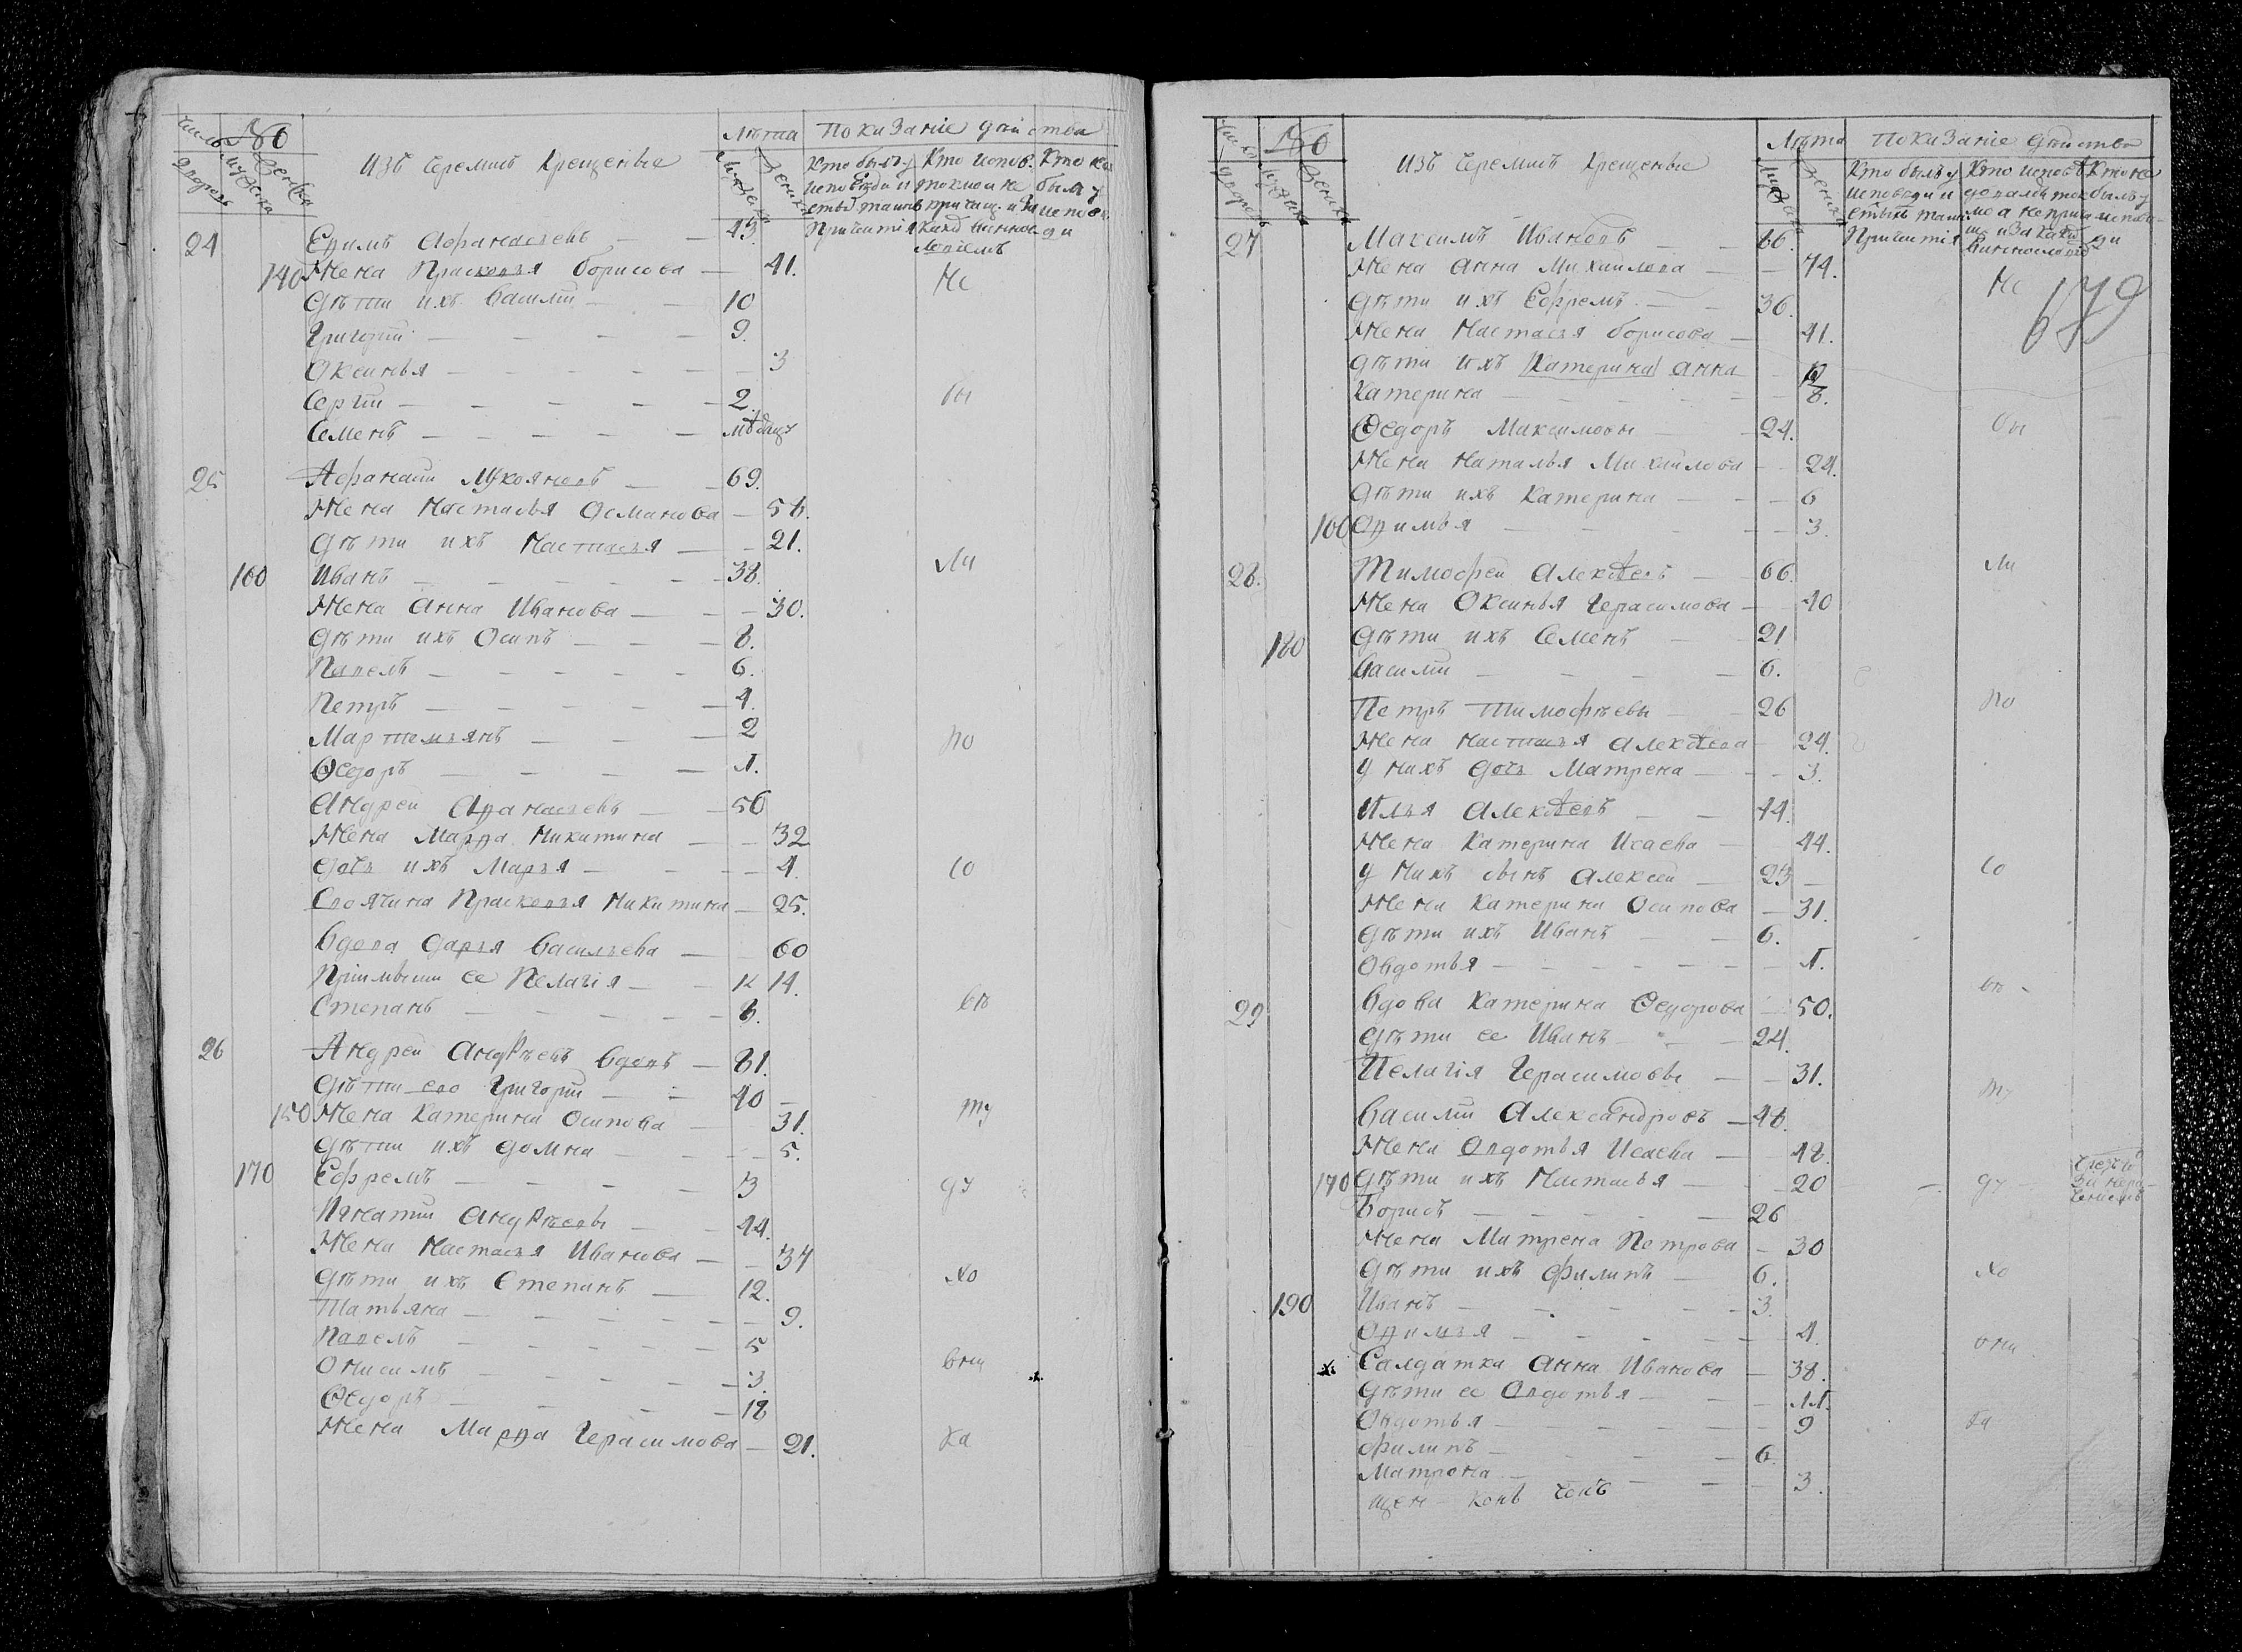 №
изъ Черемисъ Крещеные
Лѣта
Показаніе дѣйства
Кто былъ у Кто испов. Кто не
исповѣди и токмо и не былъ у
причащ.
Причастія
24 Ефимъ Афанасьевъ — 43.
140 Жена Прасковья борисова — 41.
дѣти ихъ Василий — 10
Григорий — 9.
Оксинья — 3
Сергий — 2.
Семенъ —
Не
бы
25 Афанасий Лукояновъ — 69.
Жена Настасья Османова — 58.
дѣти ихъ Настасья — 21.
160 Иванъ — 38.
Жена Анна Иванова — 30.
дѣти ихъ Осипъ — 8.
Павелъ — 6.
Петръ — 4.
Мартемьянъ — 2
Ѳедоръ — 1.
Андрей Афанасьевъ — 56
Жена Марфа Никитина — 32
дочь ихъ Марья — 4.
Своячина Прасковья Никитина — 25.
Вдова дарья Васильева — 60
Пріимыши ее Пелагія — 14.
Степанъ — 8.
ли
по
со
вѣ
26 Андрей Андрѣевъ вдовъ — 81.
дѣти ево Григорий — 40
150 Жена Катерина Осипова — 31.
дѣти ихъ домна — 5.
170 Ефремъ — 3
Игнатий Андрѣевъ — 44.
Жена Настасья Иванова — 37
дѣти ихъ Степанъ — 12.
Татьяна — 9.
Павелъ — 5
Онисимъ — 3.
Ѳедоръ — 18
Жена Марфа Герасимова — 21.
ту
ду
хо
ка
№
изъ Черемисъ Крещеные
Лѣта
Показаніе дѣйства
Кто былъ у Кто исповѣ Кто не
исповѣди и былъ у
Причастія
679
27 Максимъ Ивановъ — 66.
Жена Анна Михайлова — 74.
дѣти ихъ Ефремъ — 36.
Жена Настасья борисова — 41.
дѣти ихъ Катерина Анна —
Катерина — 8.
Ѳедоръ Максимовъ — 24.
Жена Наталья Михайлова — 24.
дѣти ихъ Катерина — 6
160 Офимья — 3.
Не
бы
28. Тимофей Алексѣевъ — 66.
Жена Оксинья Герасимова — 40
180 дѣти ихъ Семенъ — 21
Василий — 6.
Петръ Тимофѣевъ — 26
Жена Настасья Алексѣева — 24.
У нихъ дочь Матрена — 3.
Илья Алексѣевъ — 44.
Жена Катерина Исаева — 44.
У нихъ сынъ Алексей — 23
Жена Катерина Осипова — 31.
дѣти ихъ Иванъ — 6.
Овдотья — 1.
ли
по
со
вѣ
29 Вдова Катерина Ѳедорова — 50.
дѣти ее Иванъ — 24.
Пелагія Герасимовъ — 31.
Василий Александровъ — 48.
Жена Овдотья Исаева — 48
170 дѣти ихъ Настасья — 20
Борисъ — 26
Жена Матрена Петрова — 30
дѣти ихъ Филипъ — 6.
190 Иванъ — 3.
Офимья — 4.
Салдатка Анна Иванова — 38.
дѣти ее Овдотья — 11.
Овдотья — 9
Филипъ — 6.
Матрона — 3.
ту
ду
хо